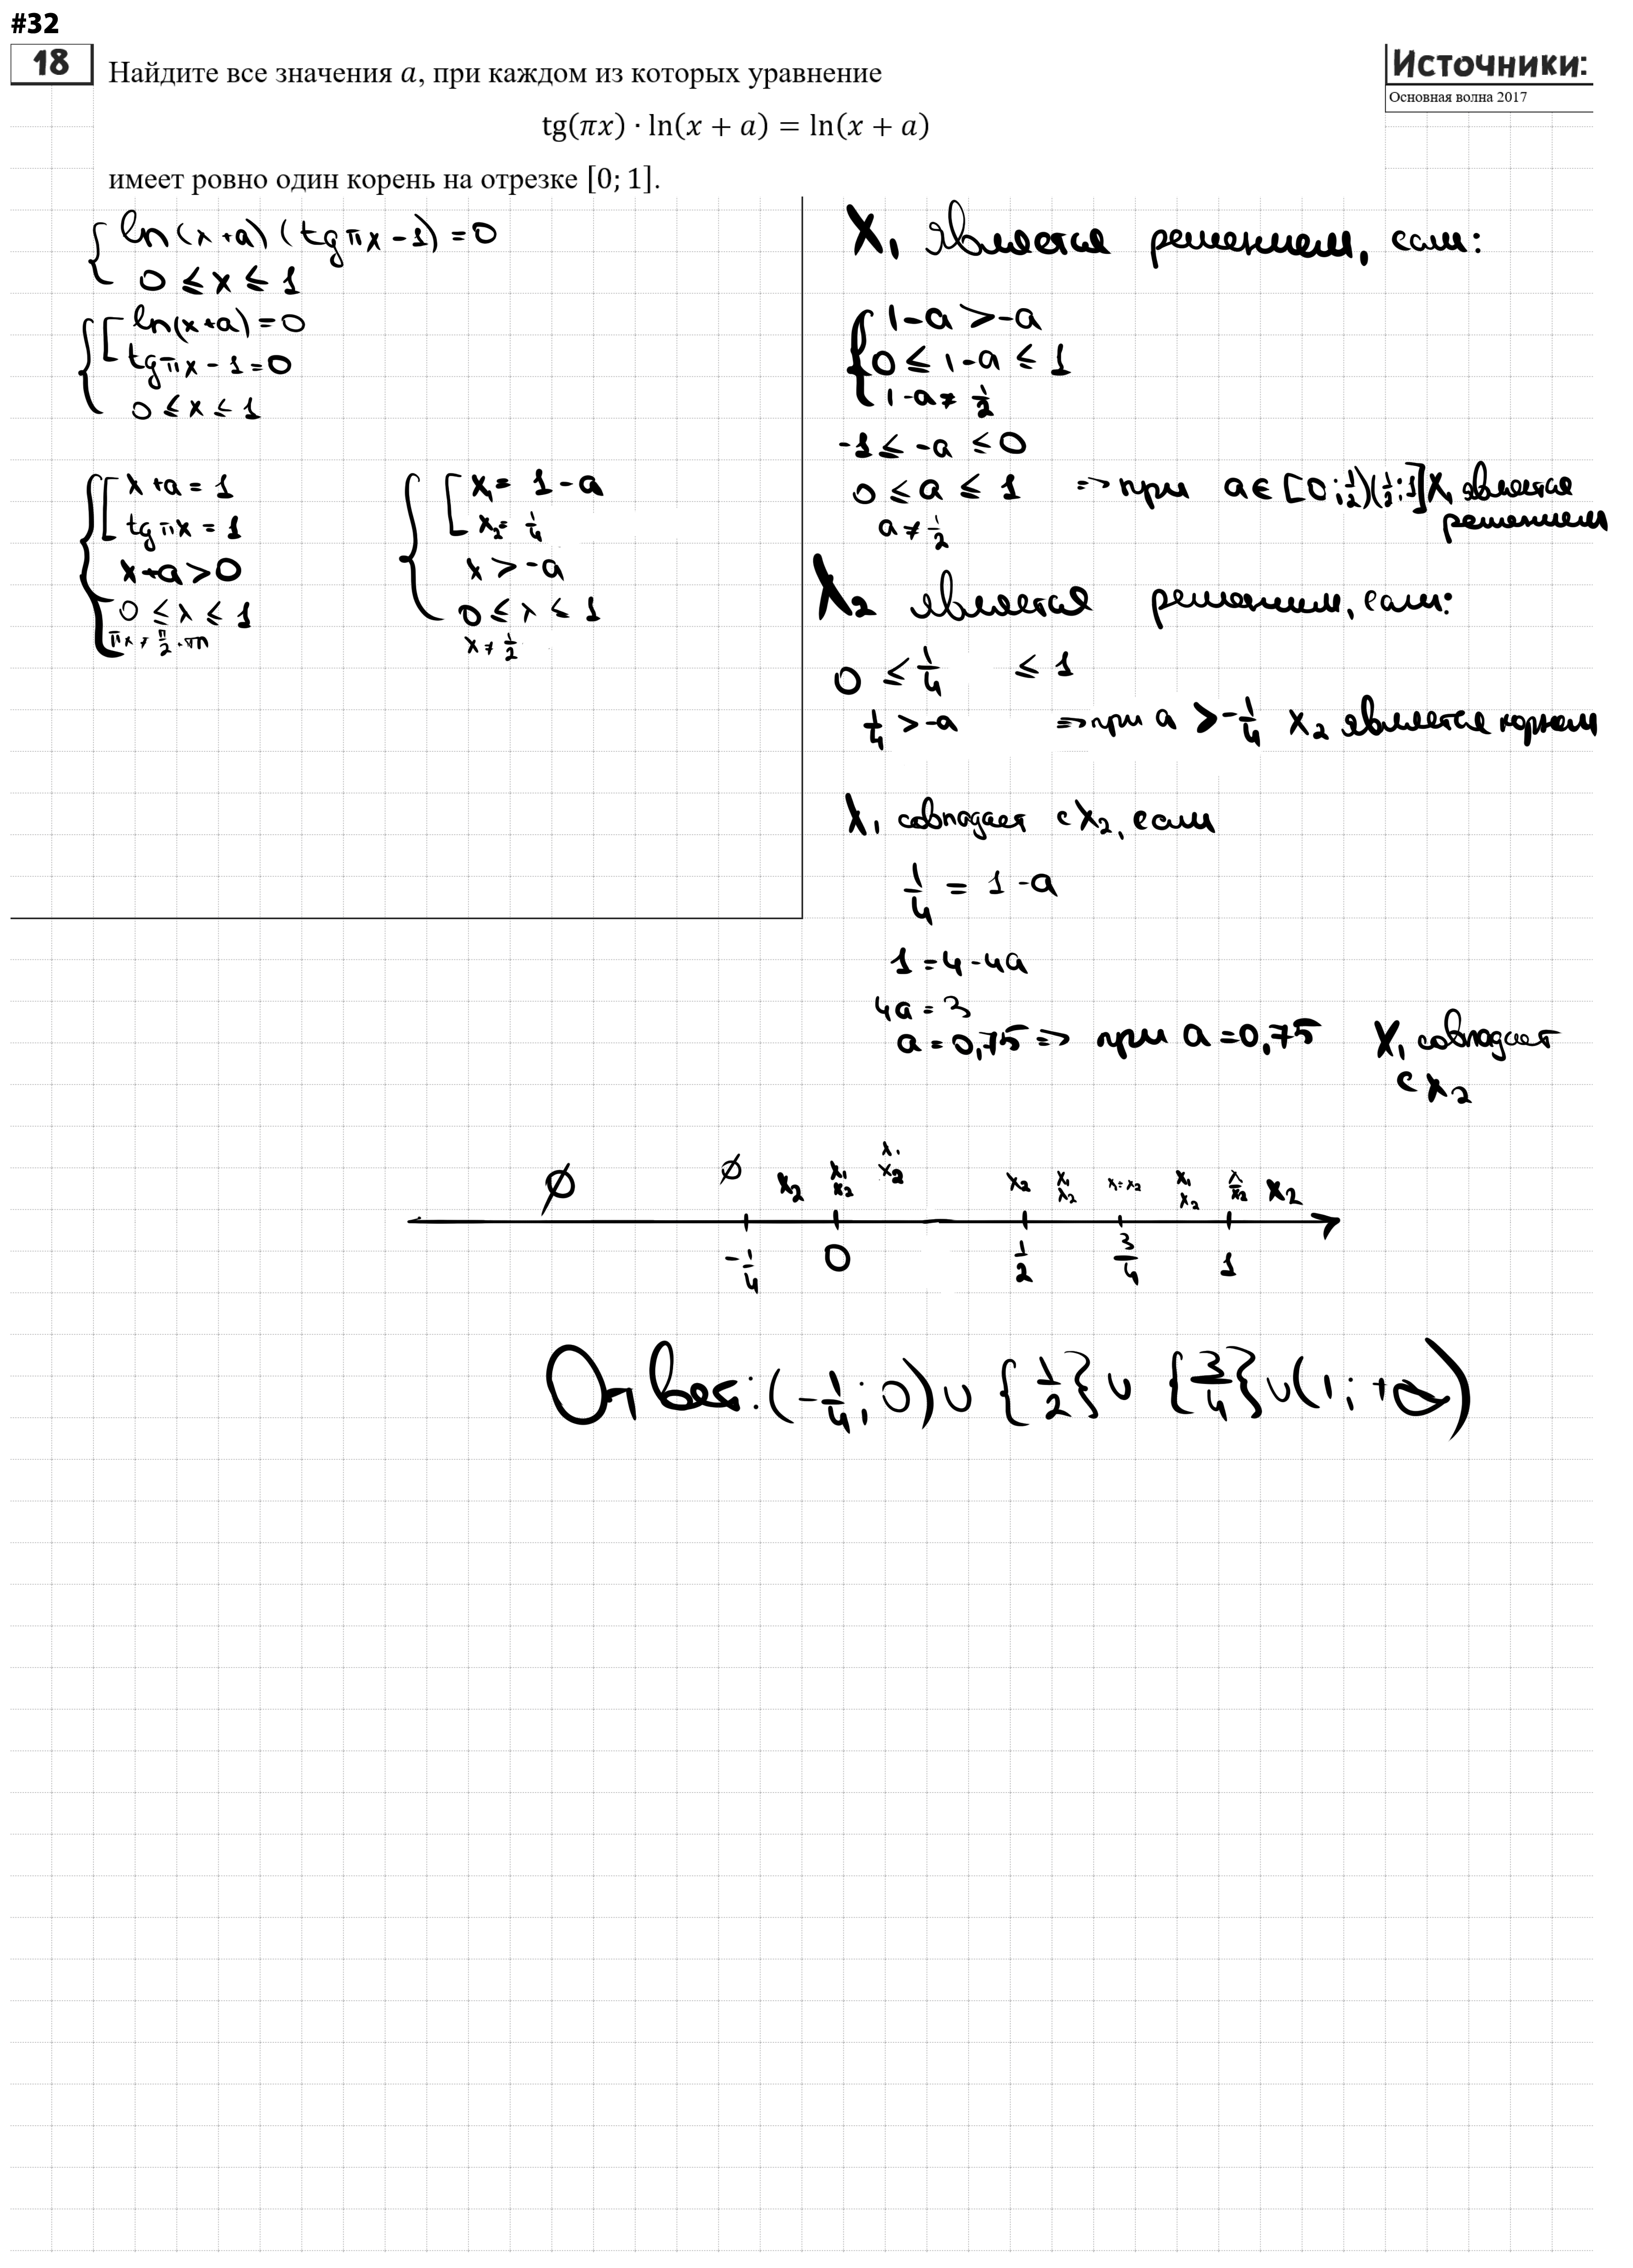 #32
18
Найдите все значения a, при каждом из которых уравнение
tg(πx) · ln(x + a) = ln(x + a)
имеет ровно один корень на отрезке [0; 1].
Источники:
Основная волна 2017
ln(x+a)(tg πx − 1) = 0
0 ≤ x ≤ 1
ln(x+a) = 0
tg πx − 1 = 0
0 ≤ x ≤ 1
x + a = 1
tg πx = 1
x+a > 0
0 ≤ x ≤ 1
πx ≠ π/2 + πn
x₁ = 1 − a
x₂ = 1/4
x > −a
0 ≤ x ≤ 1
x ≠ 1/2
X₁ является решением, если:
1−a > −a
0 ≤ 1−a ≤ 1
1−a ≠ 1/2
−1 ≤ −a ≤ 0
0 ≤ a ≤ 1 => при a ∈ [0; 1/2)(1/2; 1] X₁ является
a ≠ 1/2 решением
X₂ является решением, если:
0 ≤ 1/4 ≤ 1
1/4 > −a => при a > −1/4 x₂ является корнем
X₁ совпадает с X₂, если
1/4 = 1 − a
1 = 4 − 4a
4a = 3
a = 0,75 => при a = 0,75 X₁ совпадает
с x₂
∅ ∅ x₂ x₁ x₂ x₁ x₂ x₂ x₁ x₂ x₁=x₂ x₁ x₂ x₁ x₂ x₂
−1/4 0 1/2 3/4 1
Ответ: (−1/4; 0) ∪ {1/2} ∪ {3/4} ∪ (1; +∞)